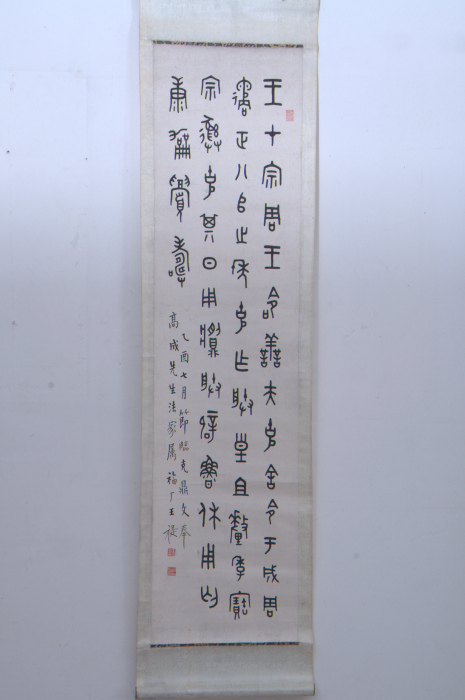 王才宗周王命善夫克舍令于成周
遹正八𠂤之年克乍朕皇且釐季寶
宗彝克其日用䵼朕辟魯休用匄
康眉壽
乙酉七月節臨克鼎文奉
高成先生法家属福厂王禔